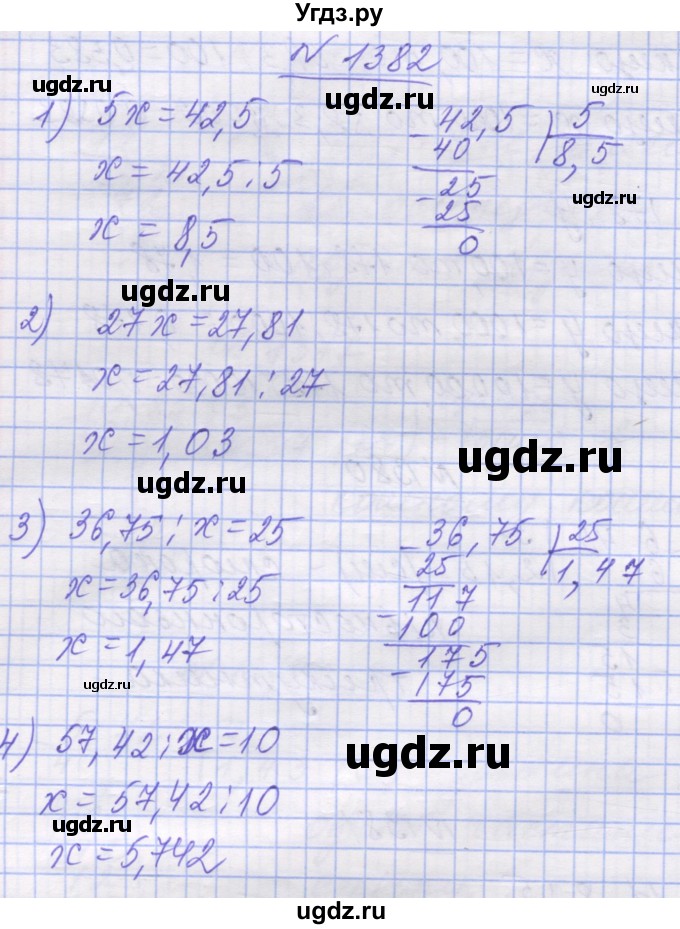 Угдз.ру
№ 1382
ugdz.ru
ugdz.ru
1) 5x = 42,5
x = 42,5 : 5
x = 8,5
- 42,5 | 5
40 | 8,5
- 25
25
0
ugdz.ru
ugdz.ru
ugdz.ru
2) 27x = 27,81
x = 27,81 : 27
x = 1,03
ugdz.ru
ugdz.ru
3) 36,75 : x = 25
x = 36,75 : 25
x = 1,47
- 36,75 | 25
25 | 1,47
117
- 100
175
- 175
0
ugdz.ru
4) 57,42 : x = 10
x = 57,42 : 10
x = 5,742
ugdz.ru
ugdz.ru
ugdz.ru